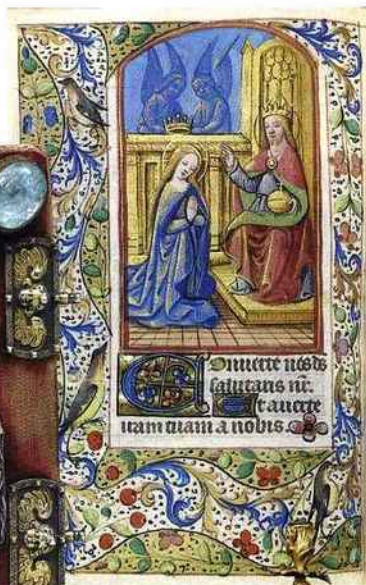 Conuerte nos ds
salutaris nr̄.
Et auerte
iram tuam a nobis.